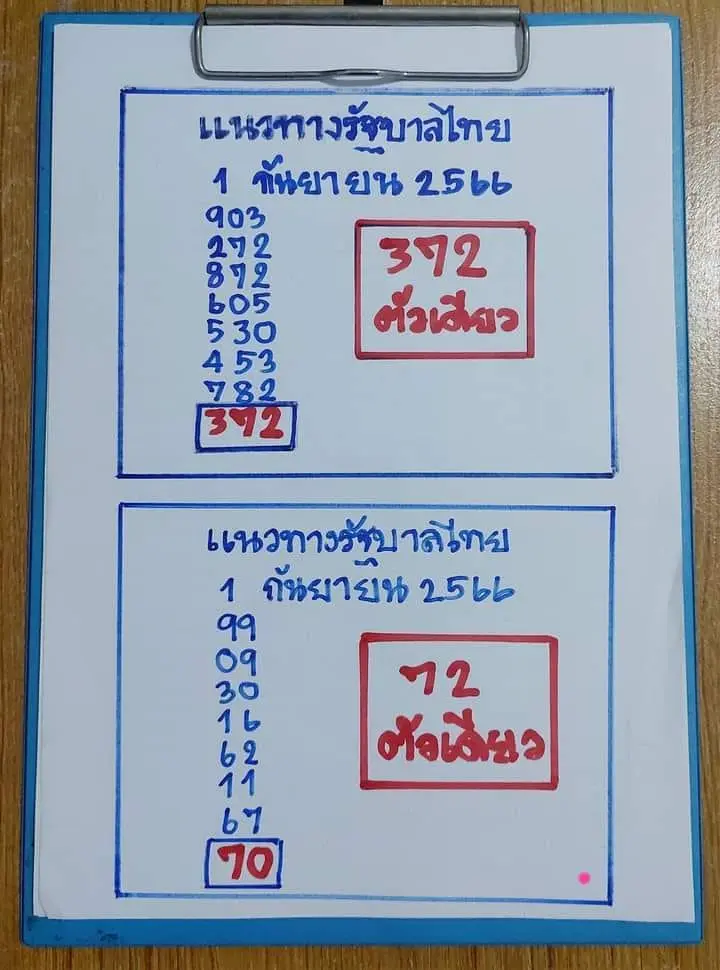 แนวทางรัฐบาลไทย
1 กันยายน 2566
903
272
872
605
530
453
782
372
372
ตัวเดียว
แนวทางรัฐบาลไทย
1 กันยายน 2566
99
09
30
16
62
11
67
70
72
ตัวเดียว